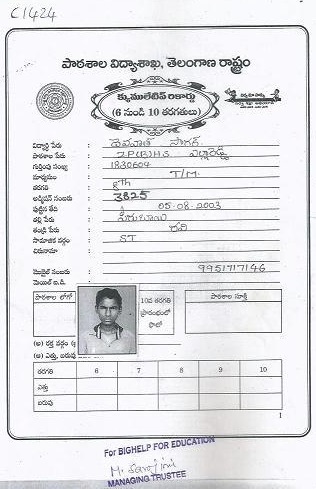 C1424
పాఠశాల విద్యాశాఖ, తెలంగాణ రాష్ట్రం
క్యుములేటివ్ రికార్డు
(6 నుండి 10 తరగతులు)
విద్యార్థి పేరు :
పాఠశాల పేరు : ZP(B)HS ఎల్లారెడ్డి
గుర్తింపు సంఖ్య : 1830604
మాధ్యమం : T/M
తరగతి : 8th
అడ్మిషన్ నంబరు : 3825
పుట్టిన తేది : 05-08-2003
తల్లి పేరు :
తండ్రి పేరు : రవి
సామాజిక వర్గం : ST
చిరునామా :
మొబైల్ నంబరు : 9951717146
మెయిల్ ఐ.డి. :
పాఠశాల లోగో
10వ తరగతి
ప్రారంభంలో
ఫొటో
పాఠశాల సూక్తి
(అ) రక్త వర్గం
(ఆ) ఎత్తు, బరువు
తరగతి 6 7 8 9 10
ఎత్తు
బరువు
1
For BIGHELP FOR EDUCATION
M. Sarojini
MANAGING TRUSTEE